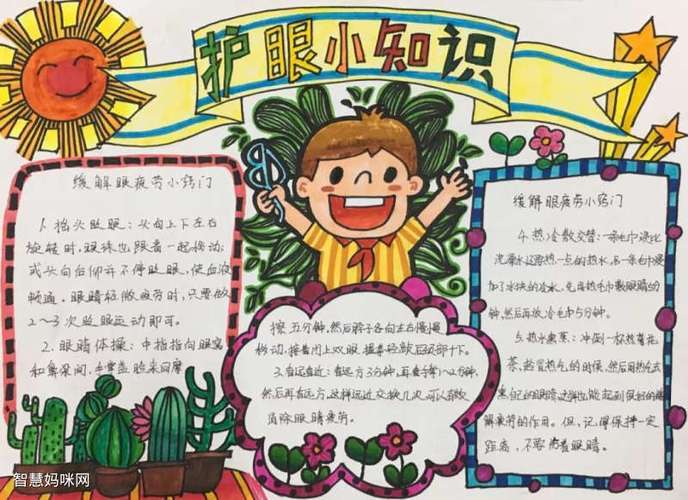 护眼小知识
缓解眼疲劳小窍门
1. 抬头眨眼：头向上下左右
旋转时，眼球也跟着一起移动；
或头向后仰并不停眨眼，使血液
畅通。眼睛轻微疲劳时，只要做
2～3次眨眼运动即可。
2. 眼睛体操：中指指向眼窝
和鼻梁间，手掌盖脸来回摩
擦五分钟，然后脖子各向左右慢慢
移动，接着闭上双眼，握拳轻敲后颈部十下。
3. 看远看近：看远方3分钟，再看手掌1～2分钟，
然后再看远方。这样远近交换几次，可以有效
消除眼睛疲劳。
缓解眼疲劳小窍门
4. 热冷敷交替：一条毛巾浸比
洗澡水还要热一点的热水，另一条毛巾浸
加了冰块的冷水，先用热毛巾敷眼睛约
分钟，然后再放冷毛巾5分钟。
5. 热水熏蒸：冲倒一杯热菊花
茶，趁冒热气的时候，然后用热气去
熏自己的眼睛，这样也能起到很好的缓
解疲劳的作用。但，记得保持一定
距离，不要烫着眼睛。
智慧妈咪网